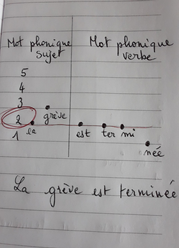 Mot phonique Mot phonique
sujet verbe
5
4
3
grève
2
la est ter mi
1
née
La grève est terminée